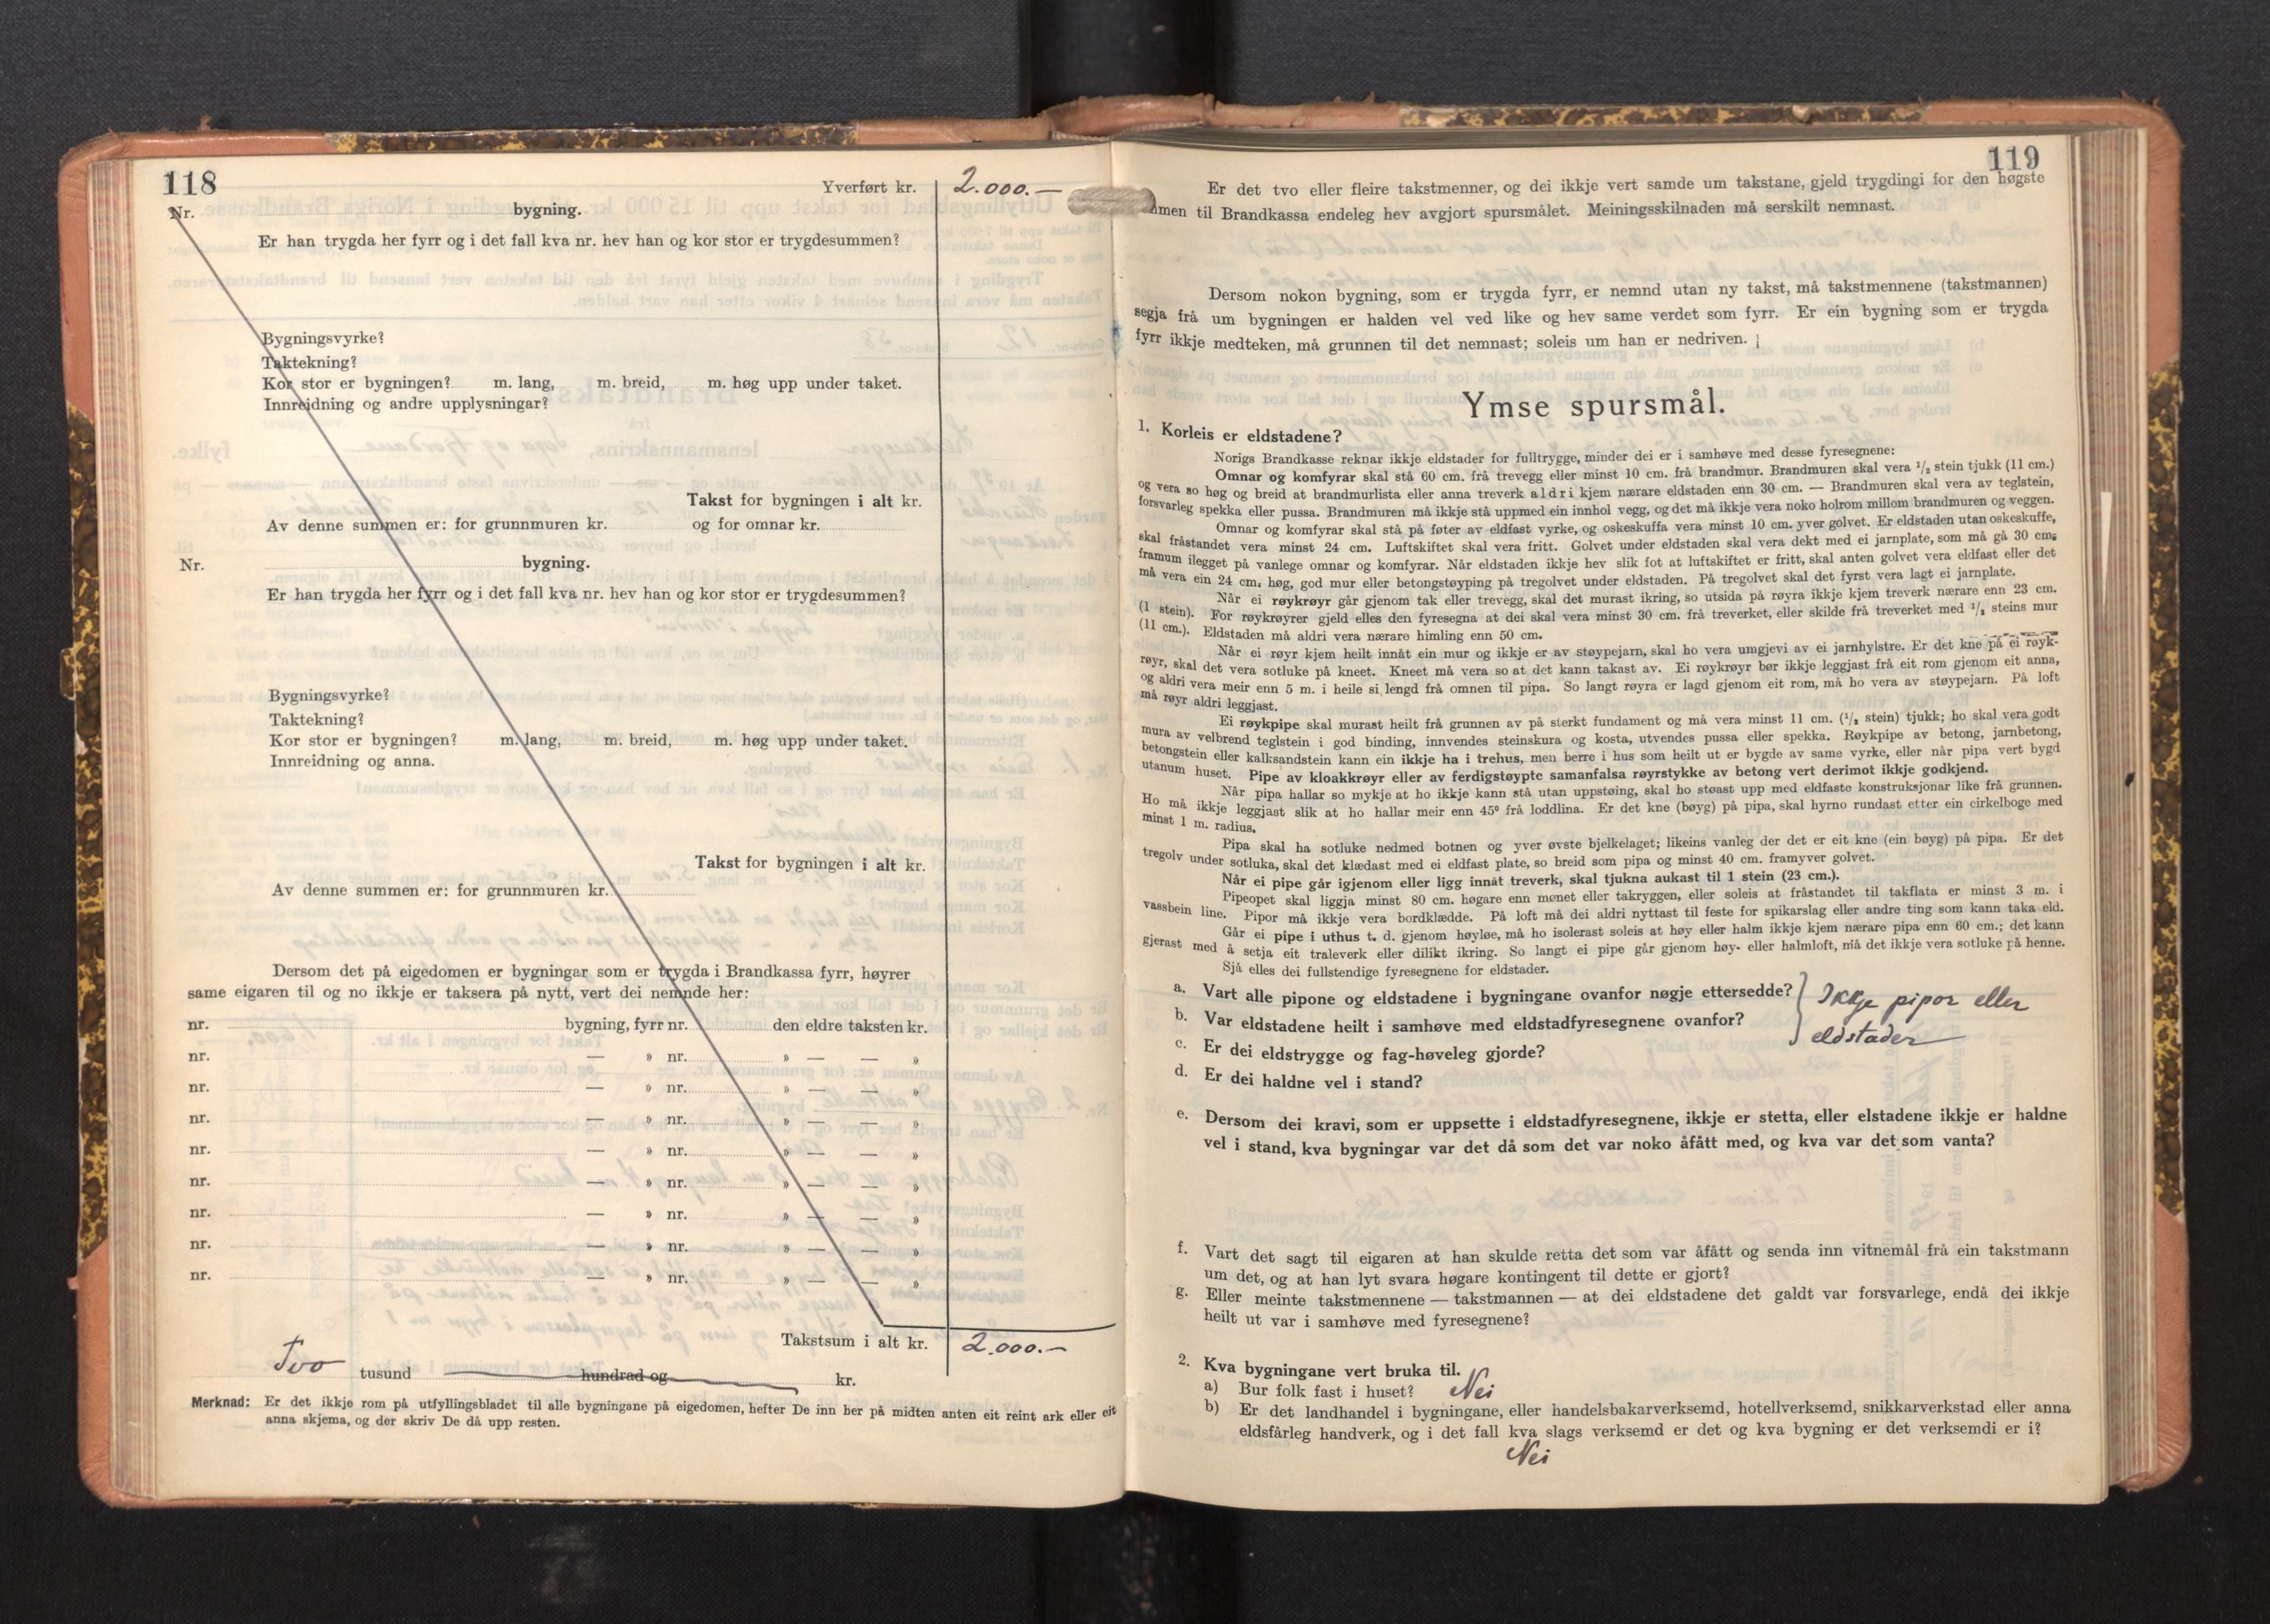 118
Yverført kr. 2.000.—
Nr. bygning.
Er han trygda her fyrr og i det fall kva nr. hev han og kor stor er trygdesummen?
Bygningsvyrke?
Taktekning?
Kor stor er bygningen? m. lang, m. breid, m. høg upp under taket.
Innreidning og andre upplysningar?
Takst for bygningen i alt kr.
Av denne summen er: for grunnmuren kr. og for omnar kr.
Nr. bygning.
Er han trygda her fyrr og i det fall kva nr. hev han og kor stor er trygdesummen?
Bygningsvyrke?
Taktekning?
Kor stor er bygningen? m. lang, m. breid, m. høg upp under taket.
Innreidning og anna.
Takst for bygningen i alt kr.
Av denne summen er: for grunnmuren kr.
Dersom det på eigedomen er bygningar som er trygda i Brandkassa fyrr, høyrer
same eigaren til og no ikkje er taksera på nytt, vert dei nemnde her:
nr. bygning, fyrr nr. den eldre taksten kr.
nr. — » nr. » — — »
nr. — » nr. » — — »
nr. — » nr. » — — »
nr. — » nr. » — — »
nr. — » nr. » — — »
nr. — » nr. » — — »
nr. — » nr. » — — »
nr. — » nr. » — — »
Takstsum i alt kr. 2.000.—
Tvo tusund hundrad og kr.
Merknad: Er det ikkje rom på utfyllingsbladet til alle bygningane på eigedomen, hefter De inn her på midten anten eit reint ark eller eit
anna skjema, og der skriv De då upp resten.
119
Er det tvo eller fleire takstmenner, og dei ikkje vert samde um takstane, gjeld trygdingi for den høgste
men til Brandkassa endeleg hev avgjort spursmålet. Meiningsskilnaden må serskilt nemnast.
Dersom nokon bygning, som er trygda fyrr, er nemnd utan ny takst, må takstmennene (takstmannen)
segja frå um bygningen er halden vel ved like og hev same verdet som fyrr. Er ein bygning som er trygda
fyrr ikkje medteken, må grunnen til det nemnast; soleis um han er nedriven.
Ymse spursmål.
1. Korleis er eldstadene?
Norigs Brandkasse reknar ikkje eldstader for fulltrygge, minder dei er i samhøve med desse fyresegnene:
Omnar og komfyrar skal stå 60 cm. frå trevegg eller minst 10 cm. frå brandmur. Brandmuren skal vera ¹/₂ stein tjukk (11 cm.)
og vera so høg og breid at brandmurlista eller anna treverk aldri kjem nærare eldstaden enn 30 cm. — Brandmuren skal vera av teglstein,
forsvarleg spekka eller pussa. Brandmuren må ikkje stå uppmed ein innhol vegg, og det må ikkje vera noko holrom millom brandmuren og veggen.
Omnar og komfyrar skal stå på føter av eldfast vyrke, og oskeskuffa vera minst 10 cm. yver golvet. Er eldstaden utan oskeskuffe,
skal fråstandet vera minst 24 cm. Luftskiftet skal vera fritt. Golvet under eldstaden skal vera dekt med ei jarnplate, som må gå 30 cm.
framum ilegget på vanlege omnar og komfyrar. Når eldstaden ikkje hev slik fot at luftskiftet er fritt, skal anten golvet vera eldfast eller det
må vera ein 24 cm. høg, god mur eller betongstøyping på tregolvet under eldstaden. På tregolvet skal det fyrst vera lagt ei jarnplate.
Når ei røykrøyr går gjenom tak eller trevegg, skal det murast ikring, so utsida på røyra ikkje kjem treverk nærare enn 23 cm.
(1 stein). For røykrøyrer gjeld elles den fyresegna at dei skal vera minst 30 cm. frå treverket, eller skilde frå treverket med ¹/₂ steins mur
(11 cm.). Eldstaden må aldri vera nærare himling enn 50 cm.
Når ei røyr kjem heilt innåt ein mur og ikkje er av støypejarn, skal ho vera umgjevi av ei jarnhylstre. Er det kne på ei røyk-
røyr, skal det vera sotluke på kneet. Kneet må vera so at det kann takast av. Ei røykrøyr bør ikkje leggjast frå eit rom gjenom eit anna,
og aldri vera meir enn 5 m. i heile si lengd frå omnen til pipa. So langt røyra er lagd gjenom eit rom, må ho vera av støypejarn. På loft
må røyr aldri leggjast.
Ei røykpipe skal murast heilt frå grunnen av på sterkt fundament og må vera minst 11 cm. (¹/₂ stein) tjukk; ho skal vera godt
mura av velbrend teglstein i god binding, innvendes steinskura og kosta, utvendes pussa eller spekka. Røykpipe av betong, jarnbetong,
betongstein eller kalksandstein kann ein ikkje ha i trehus, men berre i hus som heilt ut er bygde av same vyrke, eller når pipa vert bygd
utanum huset. Pipe av kloakkrøyr eller av ferdigstøypte samanfalsa røyrstykke av betong vert derimot ikkje godkjend.
Når pipa hallar so mykje at ho ikkje kann stå utan uppstøing, skal ho støast upp med eldfaste konstruksjonar like frå grunnen.
Ho må ikkje leggjast slik at ho hallar meir enn 45° frå loddlina. Er det kne (bøyg) på pipa, skal hyrno rundast etter ein cirkelboge med
minst 1 m. radius.
Pipa skal ha sotluke nedmed botnen og yver øvste bjelkelaget; likeins vanleg der det er eit kne (ein bøyg) på pipa. Er det
tregolv under sotluka, skal det klædast med ei eldfast plate, so breid som pipa og minst 40 cm. framyver golvet.
Når ei pipe går igjenom eller ligg innåt treverk, skal tjukna aukast til 1 stein (23 cm.).
Pipeopet skal liggja minst 80 cm. høgare enn mønet eller takryggen, eller soleis at fråstandet til takflata er minst 3 m. i
vassbein line. Pipor må ikkje vera bordklædde. På loft må dei aldri nyttast til feste for spikarslag eller andre ting som kann taka eld.
Går ei pipe i uthus t. d. gjenom høyløe, må ho isolerast soleis at høy eller halm ikkje kjem nærare pipa enn 60 cm.; det kann
gjerast med å setja eit traleverk eller dilikt ikring. So langt ei pipe går gjenom høy- eller halmloft, må det ikkje vera sotluke på henne.
Sjå elles dei fullstendige fyresegnene for eldstader.
a. Vart alle pipone og eldstadene i bygningane ovanfor nøgje ettersedde? Ikkje pipor eller
b. Var eldstadene heilt i samhøve med eldstadfyresegnene ovanfor? eldstader
c. Er dei eldstrygge og fag-høveleg gjorde?
d. Er dei haldne vel i stand?
e. Dersom dei kravi, som er uppsette i eldstadfyresegnene, ikkje er stetta, eller elstadene ikkje er haldne
vel i stand, kva bygningar var det då som det var noko åfått med, og kva var det som vanta?
f. Vart det sagt til eigaren at han skulde retta det som var åfått og senda inn vitnemål frå ein takstmann
um det, og at han lyt svara høgare kontingent til dette er gjort?
g. Eller meinte takstmennene — takstmannen — at dei eldstadene det galdt var forsvarlege, endå dei ikkje
heilt ut var i samhøve med fyresegnene?
2. Kva bygningane vert bruka til.
a) Bur folk fast i huset? Nei
b) Er det landhandel i bygningane, eller handelsbakarverksemd, hotellverksemd, snikkarverkstad eller anna
eldsfårleg handverk, og i det fall kva slags verksemd er det og kva bygning er det verksemdi er i?
Nei